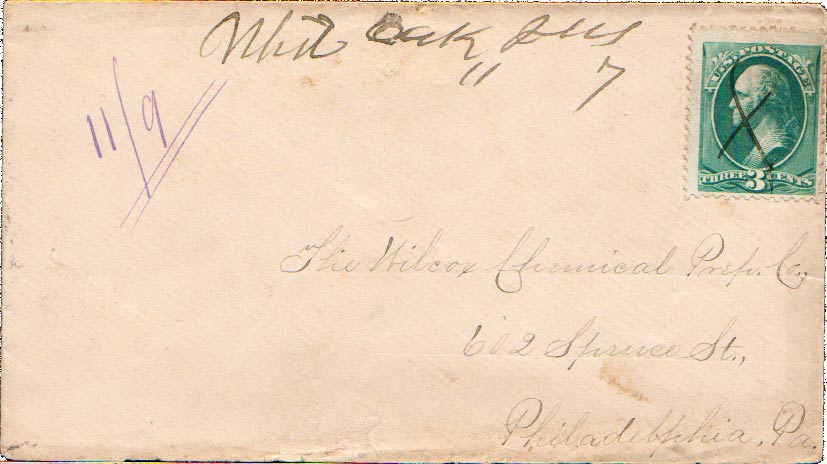 Whit Oak
11 7
11/9
U.S. POSTAGE
THREE 3 CENTS
The Wilcox Chemical Prep. Co.,
602 Spruce St.,
Philadelphia, Pa.